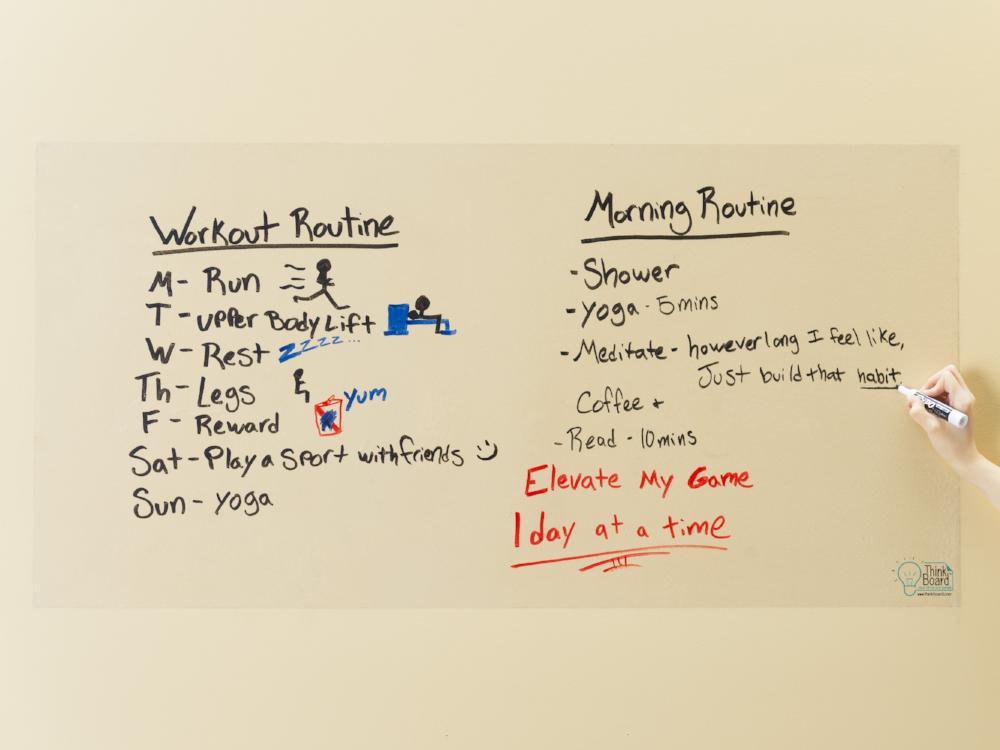 Workout Routine
M - Run
T - upper Body Lift
W - Rest zzzz...
Th - Legs
F - Reward yum
Sat - Play a sport with friends :)
Sun - yoga
Morning Routine
- Shower
- yoga - 5 mins
- Meditate - however long I feel like,
Just build that habit.
Coffee +
- Read - 10 mins
Elevate My Game
1 day at a time
Think
Board
www.thinkboard.com